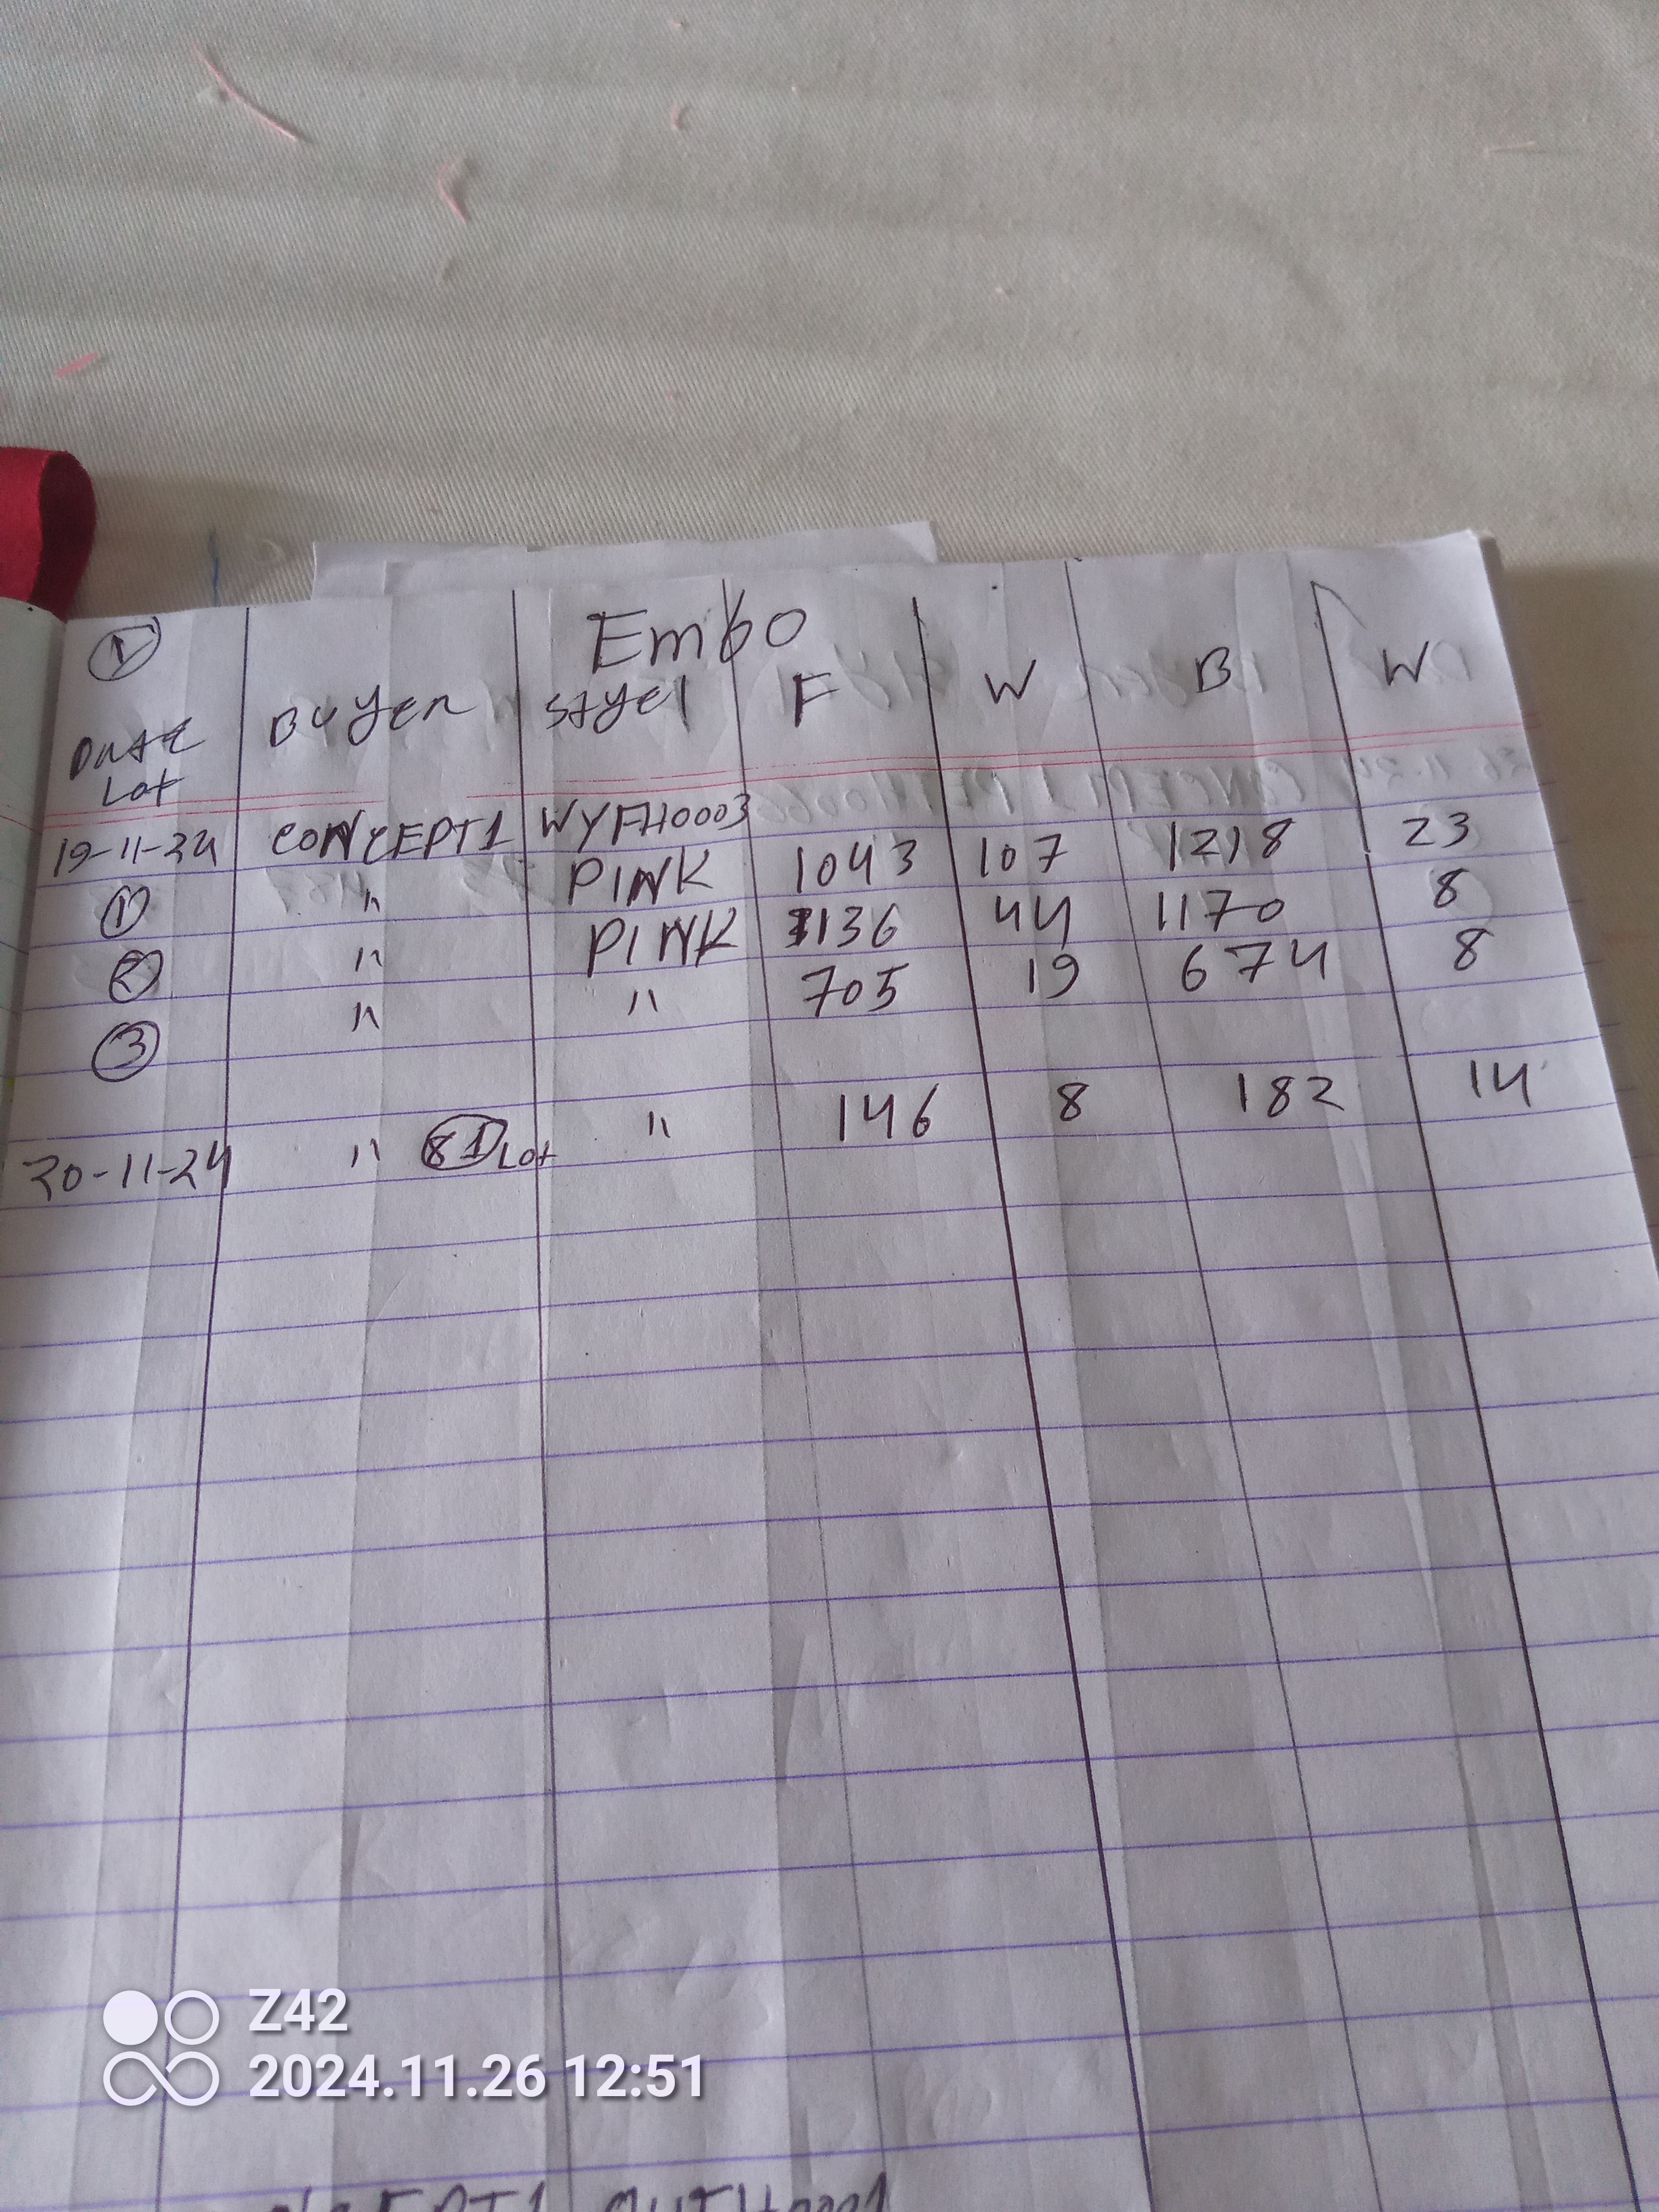 1
Embo
Date Buyer styel F W B W
Lot
19-11-24 CONCEPT1 WYFH0003
1 " PINK 1043 107 1218 23
2 " PINK 1136 44 1170 8
3 " " 705 19 674 8
20-11-24 " 81 Lot " 146 8 182 14
Z42
2024.11.26 12:51